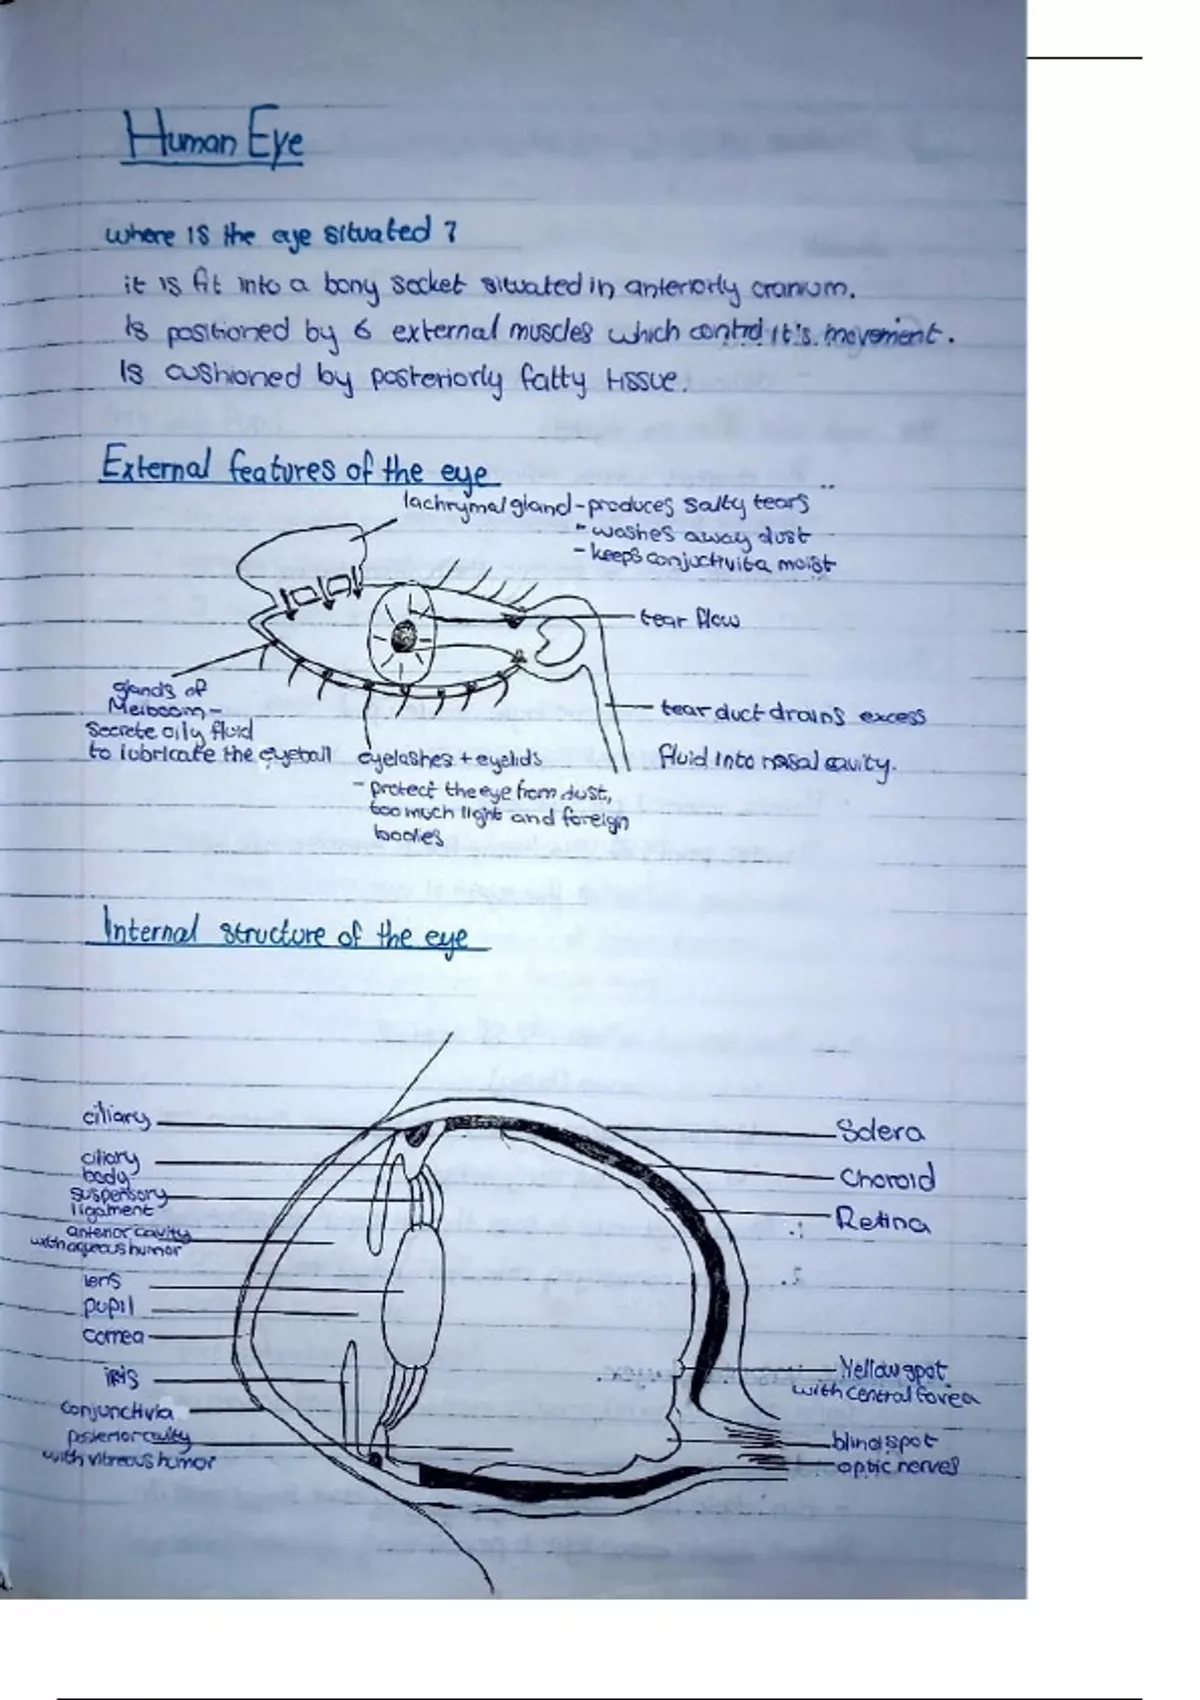 Human Eye
where is the eye situated ?
it is fit into a bony socket situated in anteriorly cranium.
Is positioned by 6 external muscles which control it's movement.
Is cushioned by posteriorly fatty tissue.
External features of the eye
lachrymal gland - produces salty tears
- washes away dust
- keeps conjuctivita moist
tear flow
glands of
Meiboom -
secrete oily fluid
to lubricate the eyeball
eyelashes + eyelids
- protect the eye from dust,
too much light and foreign
bodies
tear duct drains excess
fluid into nasal cavity.
Internal structure of the eye
ciliary
ciliary
body
suspensory
ligament
anterior cavity
with aqueous humor
lens
pupil
cornea
iris
conjunctivia
posterior cavity
with vitreous humor
Sclera
Choroid
Retina
Yellow spot
with central fovea
blind spot
optic nerves